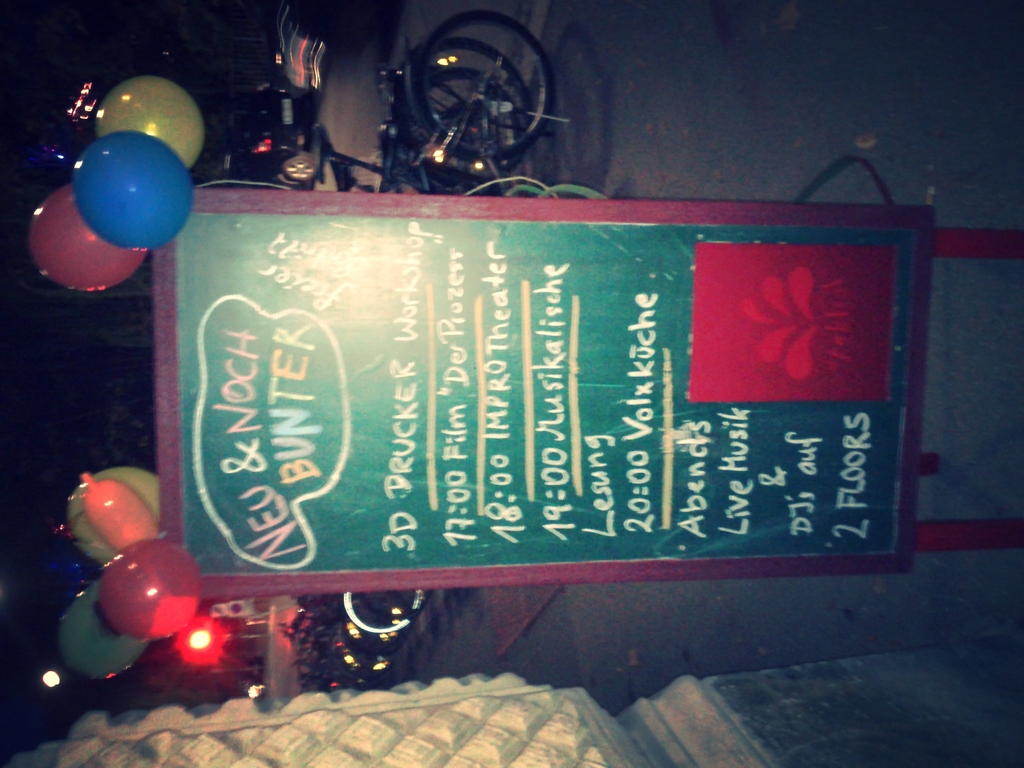 NEU & NOCH
BUNTER
3D DRUCKER Workshop
17:00 Film "Der Prozess"
18:00 IMPRO Theater
19:00 Musikalische
Lesung
20:00 Volxküche
Abends
Live Musik
&
DJ's auf
2 FLOORS